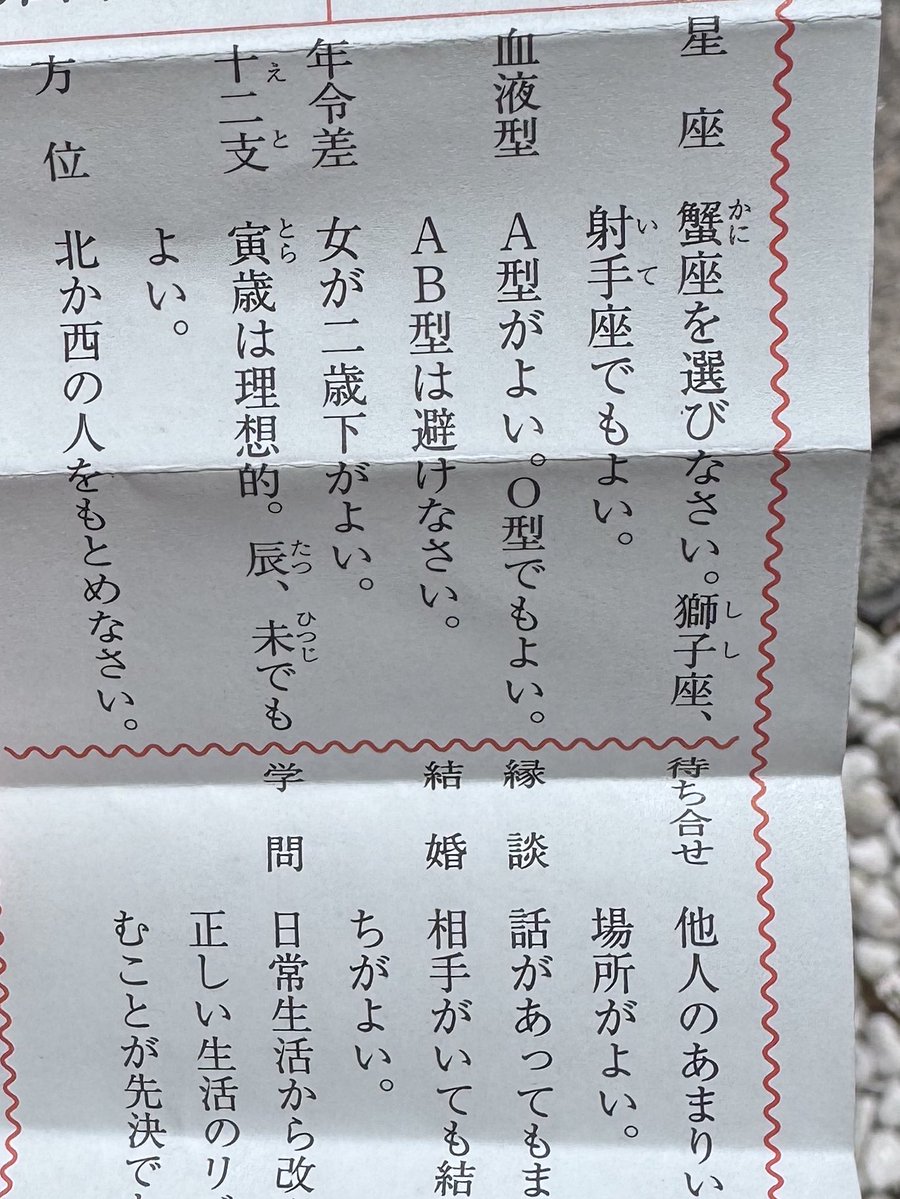 星座 蟹座を選びなさい。獅子座、
射手座でもよい。
血液型 A型がよい。O型でもよい。
AB型は避けなさい。
年令差 女が二歳下がよい。
十二支 寅歳は理想的。辰、未でも
よい。
方位 北か西の人をもとめなさい。
待ち合せ 他人のあまりい
場所がよい。
縁談 話があってもま
結婚 相手がいても結
ちがよい。
学問 日常生活から改
正しい生活のリ
むことが先決で